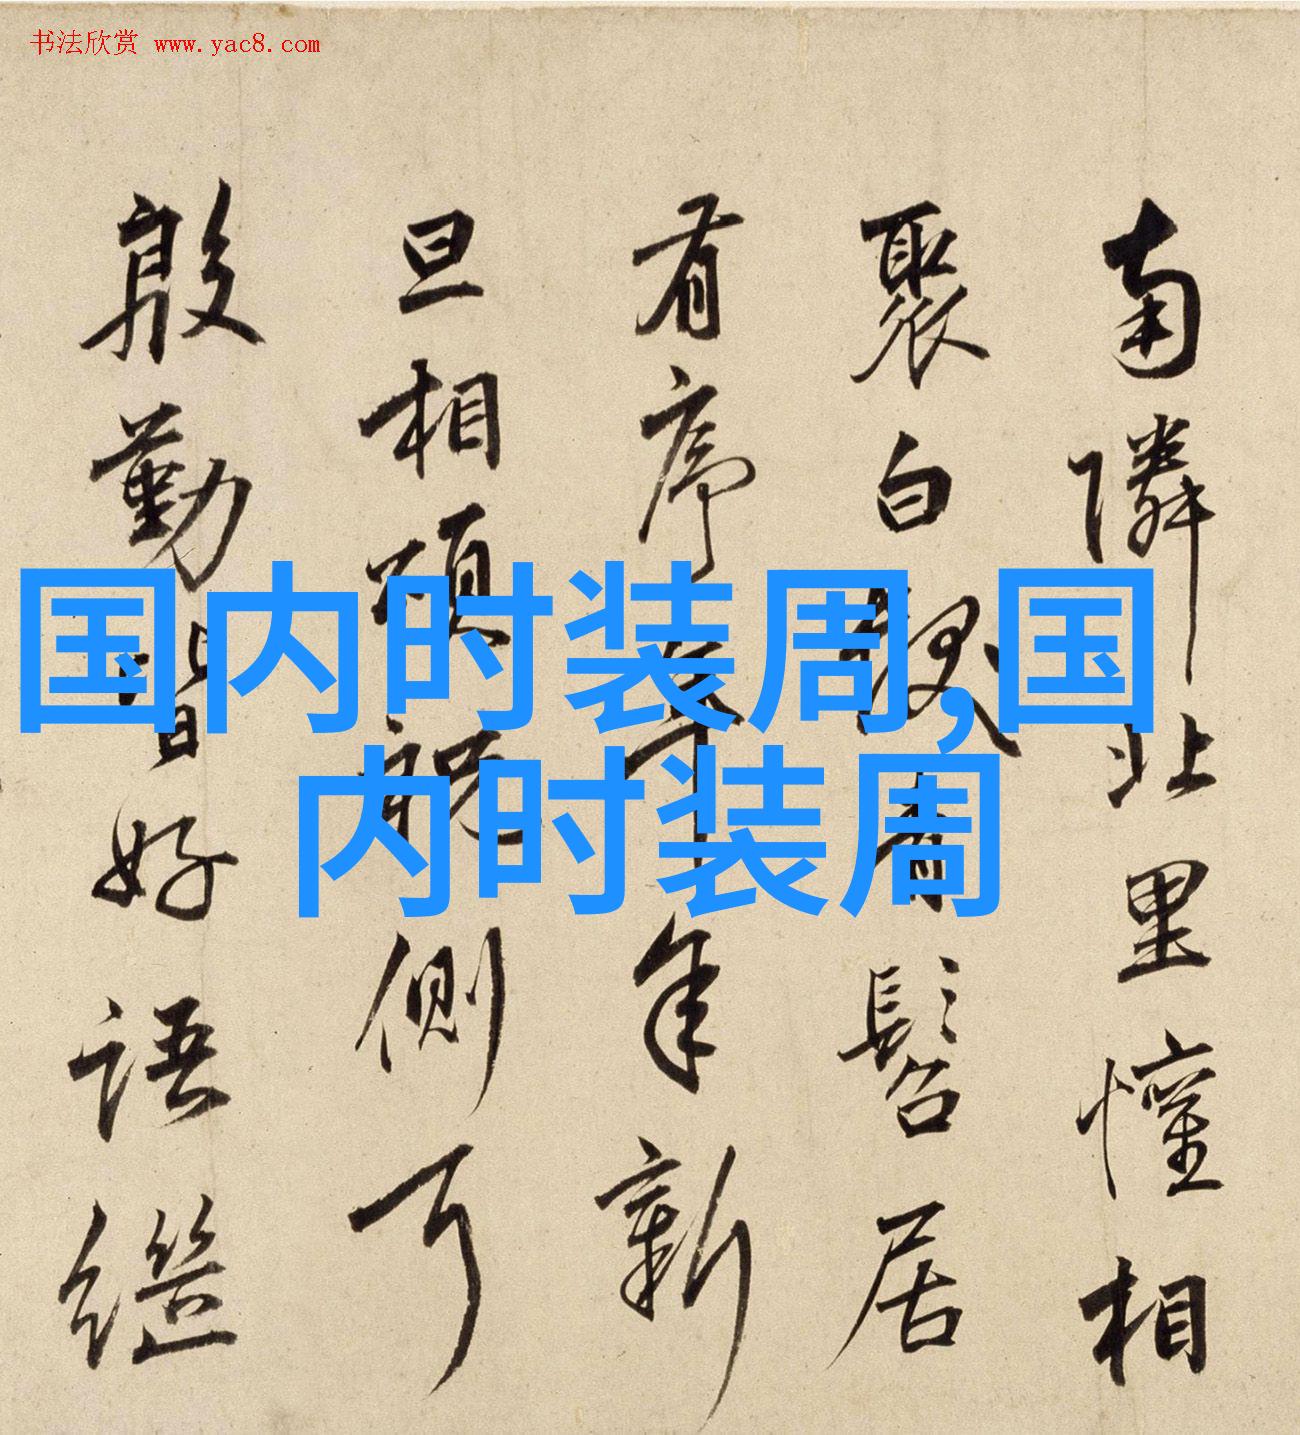 书法欣赏 www.yac8.com
国内时装周,国
内时装周
南隣北里懽相
聚白髫居
有序年新
旦相視側
殷勤皆好語繼